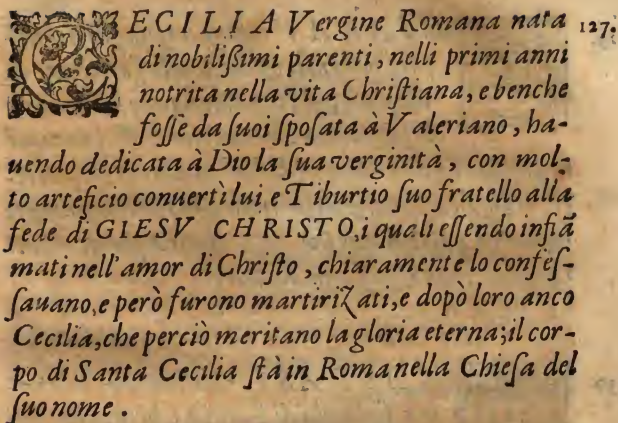 CECILIA Vergine Romana nata 127.
di nobilißimi parenti, nelli primi anni
notrita nella vita Chriſtiana, e benche
foſſe da ſuoi ſpoſata à Valeriano, ha-
uendo dedicata à Dio la ſua verginità, con mol-
to arteficio conuertì lui e Tiburtio ſuo fratello alla
fede di GIESV CHRISTO, i quali eſſendo infiã
mati nell'amor di Chriſto, chiaramente lo confeſ-
ſauano, e però furono martirizati, e dopò loro anco
Cecilia, che perciò meritano la gloria eterna; il cor-
po di Santa Cecilia ſtà in Roma nella Chieſa del
ſuo nome.